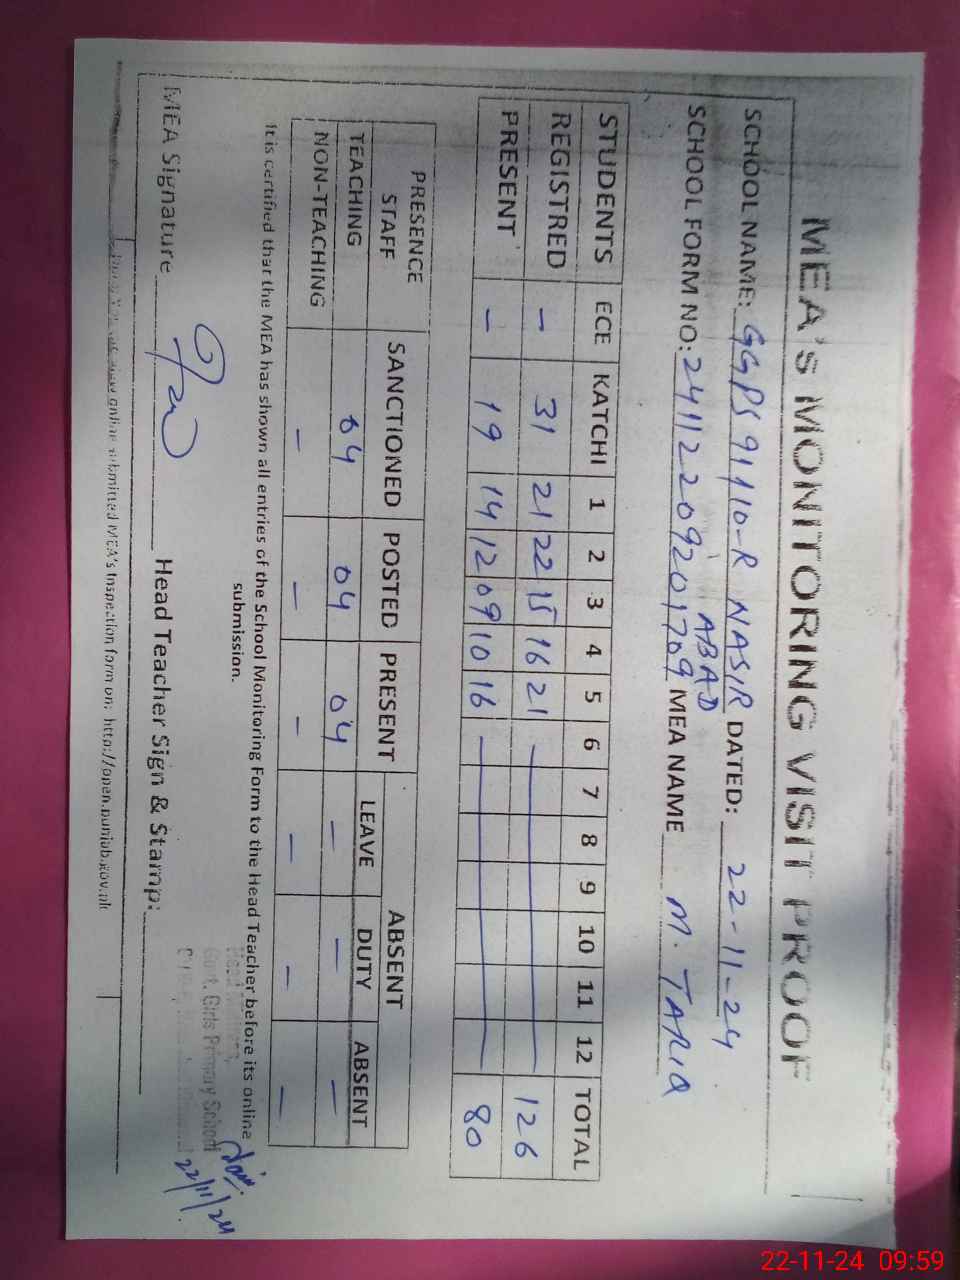 MEA'S MONITORING VISIT PROOF
SCHOOL NAME: GGPS 91/10-R NASIR ABAD DATED: 22-11-24
SCHOOL FORM NO: 24112209201709 MEA NAME M. TARIQ
STUDENTS ECE KATCHI 1 2 3 4 5 6 7 8 9 10 11 12 TOTAL
REGISTRED – 31 21 22 15 16 21 — 126
PRESENT – 19 14 12 09 10 16 — 80
PRESENCE STAFF SANCTIONED POSTED PRESENT ABSENT
LEAVE DUTY ABSENT
TEACHING 04 04 04 – – –
NON-TEACHING – – – – – –
It is certified that the MEA has shown all entries of the School Monitoring Form to the Head Teacher before its online
submission.
MEA Signature Head Teacher Sign & Stamp:
Govt. Girls Primary School
22/11/24
submitted MEA's Inspection form on: http://open.punjab.gov.pk
22-11-24 09:59